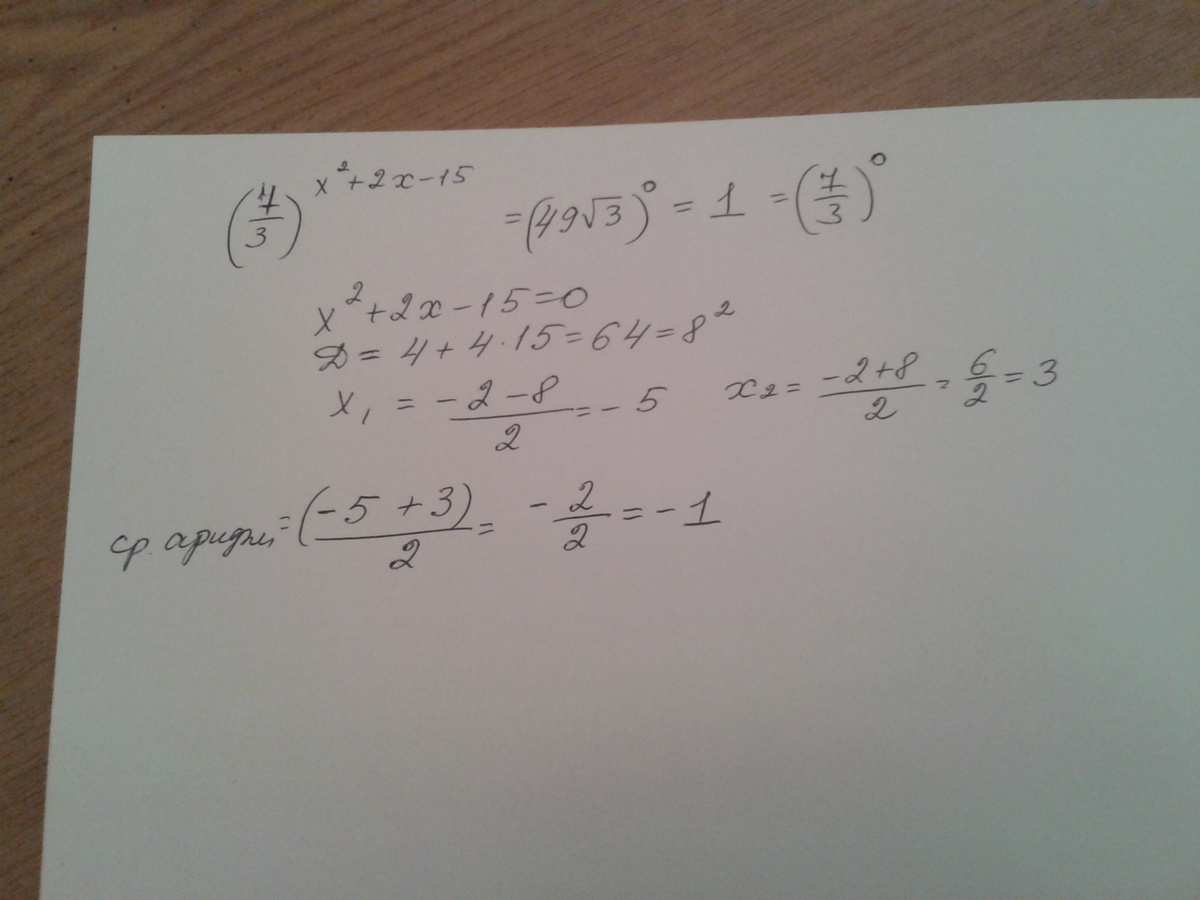 (7/3)^(x²+2x−15) = (49√3)⁰ = 1 = (7/3)⁰
x²+2x−15=0
D = 4+4·15=64=8²
x₁ = (−2−8)/2 = −5 x₂ = (−2+8)/2 = 6/2 = 3
ср. арифм = (−5+3)/2 = −2/2 = −1